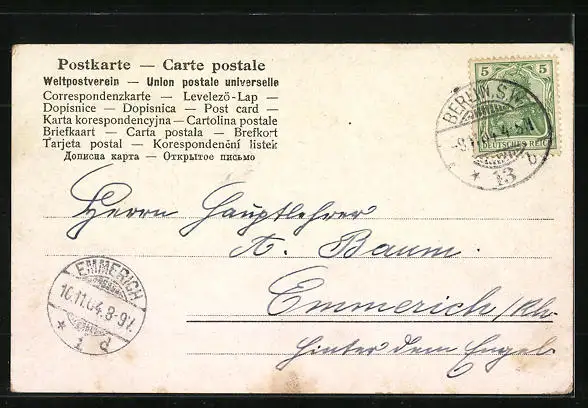 Postkarte — Carte postale
Weltpostverein — Union postale universelle
Correspondenzkarte — Levelező-Lap —
Dopisnice — Dopisnica — Post card —
Karta korespondencyjna — Cartolina postale
Briefkaart — Carta postala — Brefkort
Tarjeta postal — Korespondenční lístek
Дописна карта — Открытое письмо
5 5
DEUTSCHES REICH
BERLIN, S.W.
9.11.04.4-5N
* 13 b
Herrn Hauptlehrer
A. Baum.
Emmerich/Rh.
hinter dem Engel.
EMMERICH
10.11.04.8-9V.
* 1 d